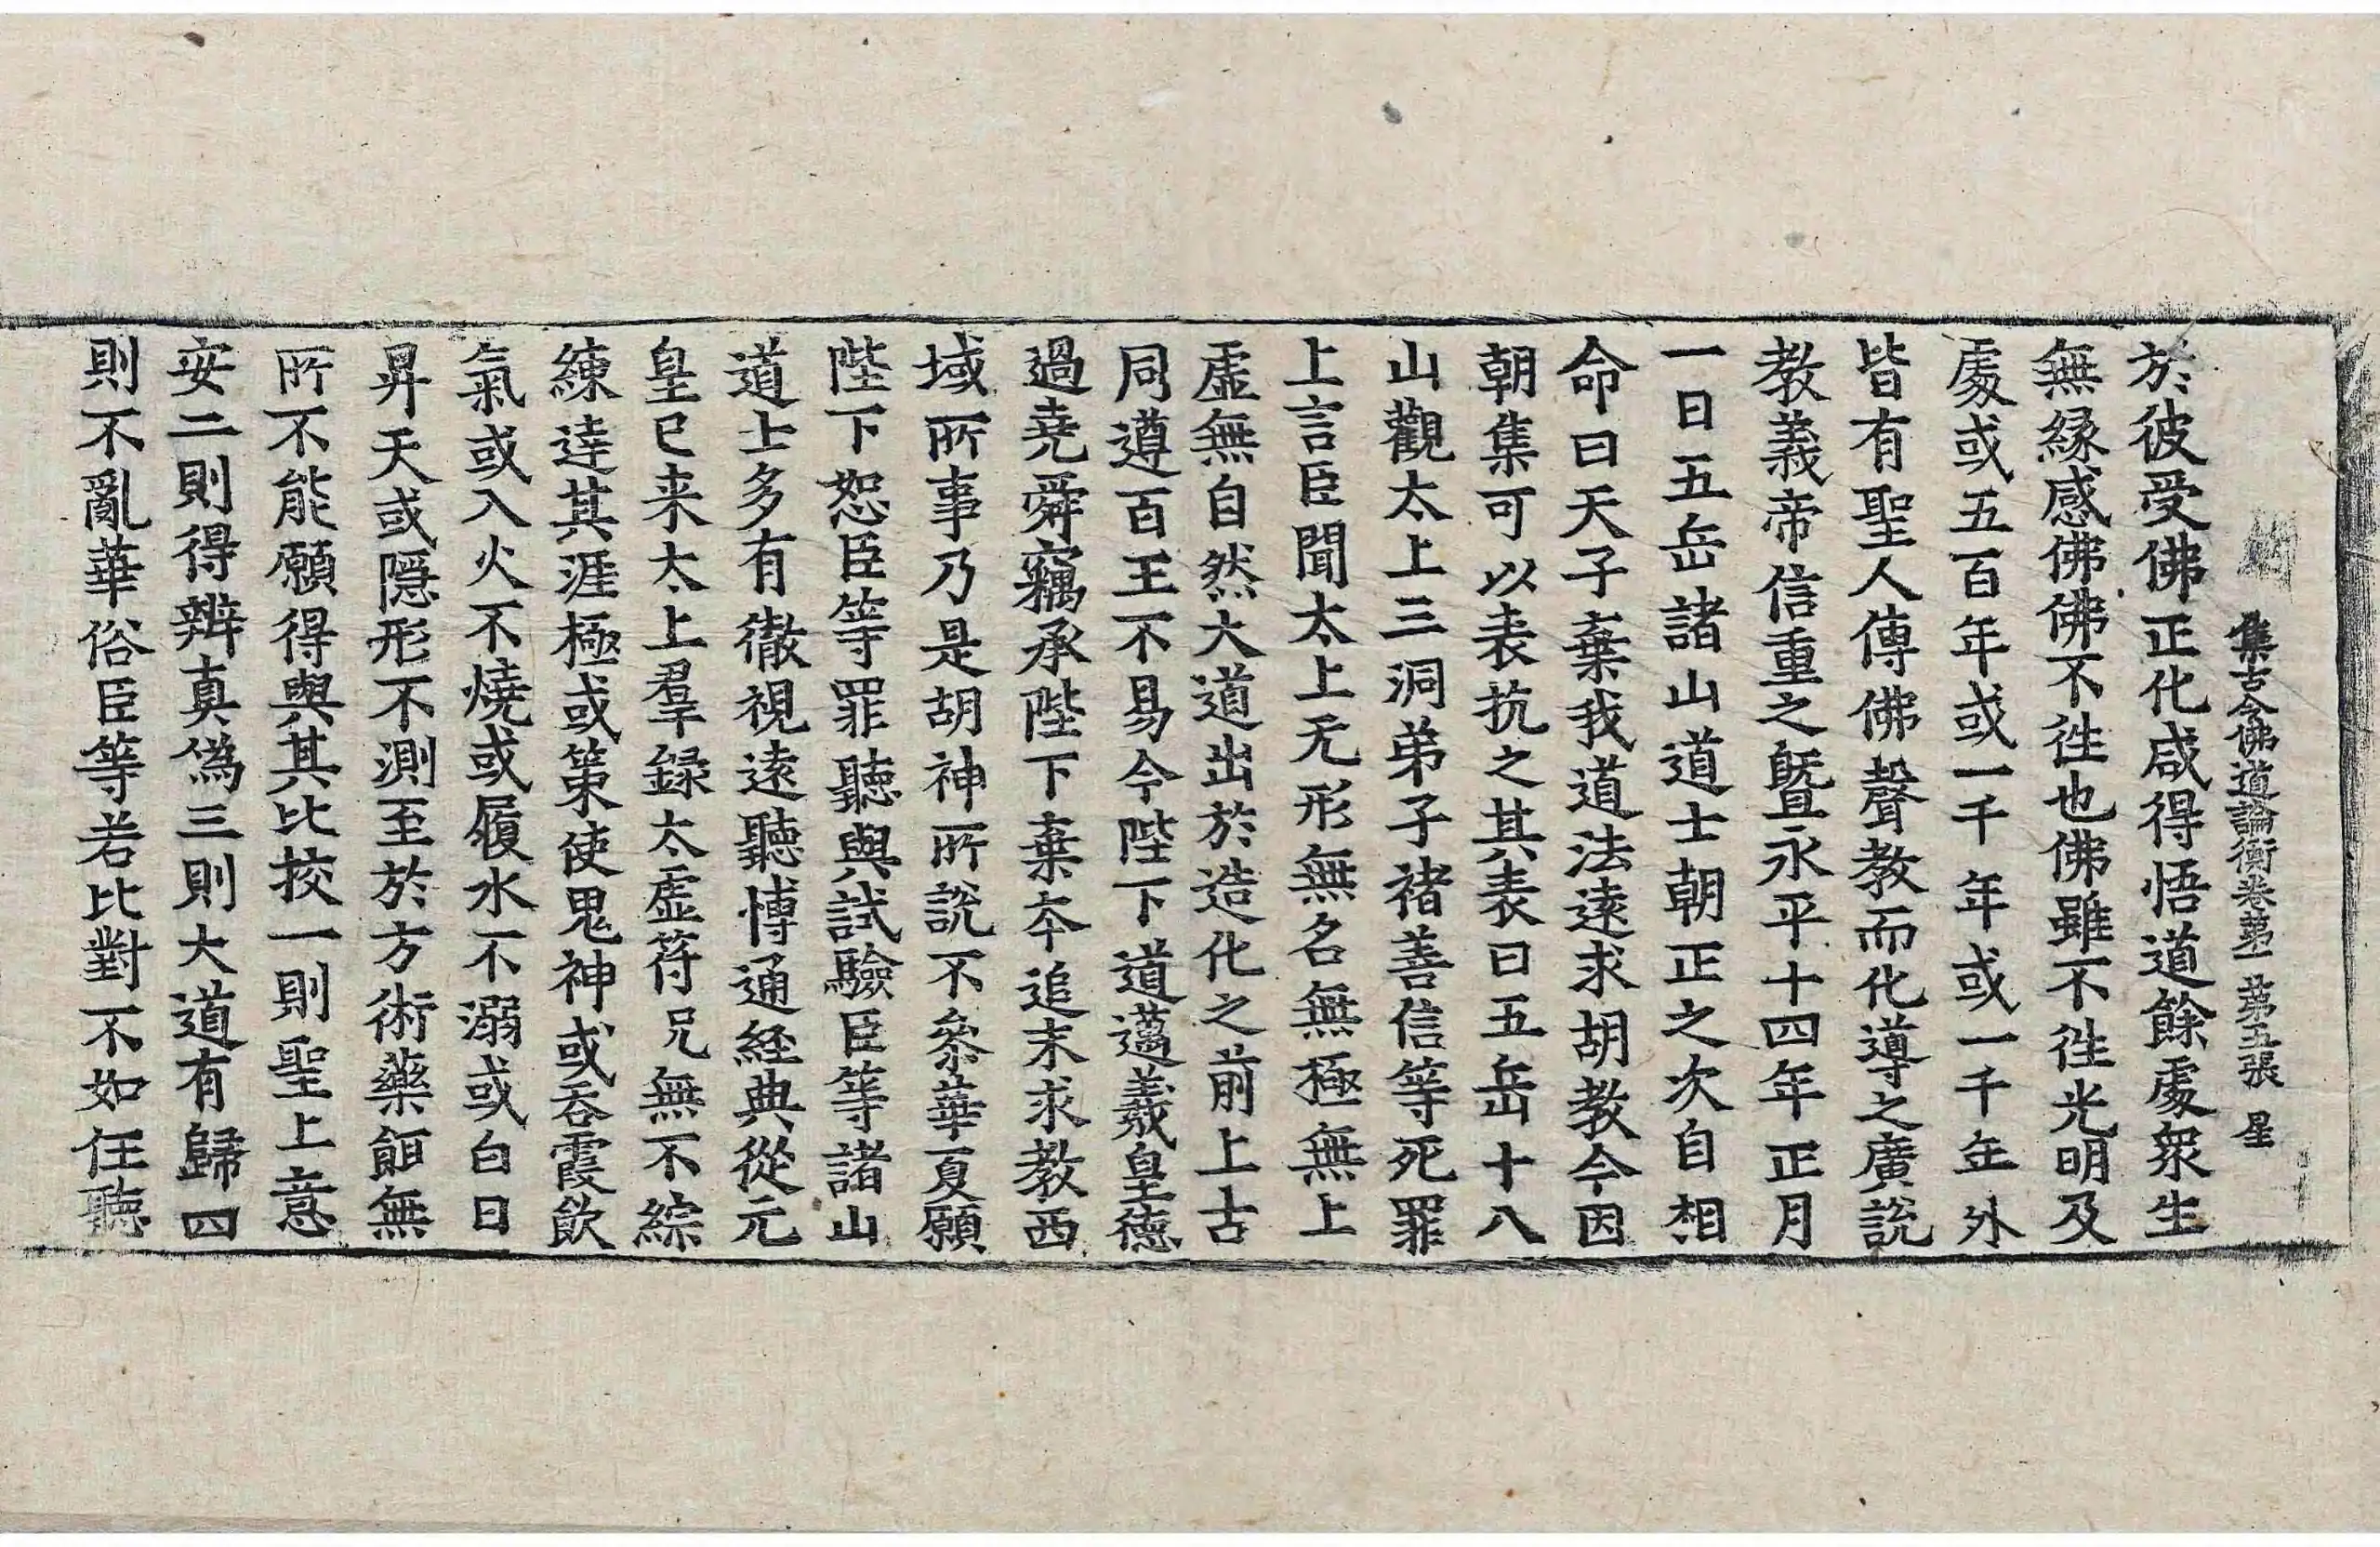 集古今佛道論衡卷第一 第五張 星
於彼受佛正化咸得悟道餘處衆生
無緣感佛佛不徃也佛雖不徃光明及
處或五百年或一千年或一千年外
皆有聖人傳佛聲教而化導之廣說
教義帝信重之曁永平十四年正月
一日五岳諸山道士朝正之次自相
命曰天子棄我道法遠求胡教今因
朝集可以表抗之其表曰五岳十八
山觀太上三洞弟子褚善信等死罪
上言臣聞太上无形無名無極無上
虛無自然大道出於造化之前上古
同遵百王不易今陛下道邁羲皇德
過堯舜竊承陛下棄夲追末求教西
域所事乃是胡神所說不叅華夏願
陛下恕臣等罪聽與試驗臣等諸山
道士多有徹視遠聽博通經典從元
皇已来太上羣録太虛符呪無不綜
練達其涯極或策使鬼神或吞霞飲
氣或入火不燒或履水不溺或白日
昇天或隱形不測至於方術藥餌無
所不能願得與其比挍一則聖上意
安二則得辨真僞三則大道有歸四
則不亂華俗臣等若比對不如任聽